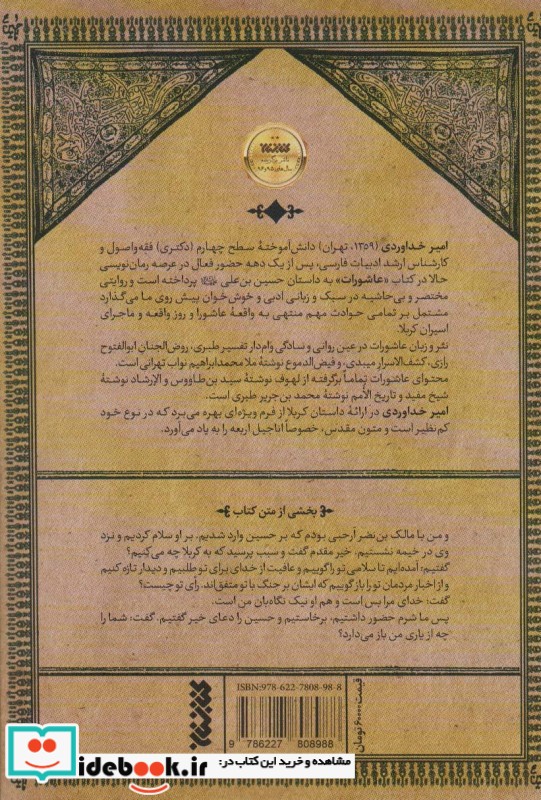 امیر خداوردی (۱۳۵۹، تهران) دانش‌آموختهٔ سطح چهارم (دکتری) فقه‌واصول و
کارشناس ارشد ادبیات فارسی، پس از یک دهه حضور فعال در عرصه رمان‌نویسی
حالا در کتاب «عاشورات» به داستان حسین بن‌علی پرداخته است و روایتی
مختصر و بی‌حاشیه در سبک و زبانی ادبی و خوش‌خوان پیش روی ما می‌گذارد
مشتمل بر تمامی حوادث مهم منتهی به واقعهٔ عاشورا و روز واقعه و ماجرای
اسیران کربلا.
نثر و زبان عاشورات در عین روانی و سادگی وام‌دار تفسیر طبری، روض‌الجنان ابوالفتوح
رازی، کشف‌الاسرار میبدی، و فیض‌الدموع نوشتهٔ ملا محمدابراهیم نواب تهرانی است.
محتوای عاشورات تماماً برگرفته از لهوف نوشتهٔ سید بن‌طاووس و الإرشاد نوشتهٔ
شیخ مفید و تاریخ الأمم نوشتهٔ محمد بن‌جریر طبری است.
امیر خداوردی در ارائهٔ داستان کربلا از فرم ویژه‌ای بهره می‌برد که در نوع خود
کم‌نظیر است و متون مقدس، خصوصاً اناجیل اربعه را به یاد می‌آورد.
بخشی از متن کتاب
و من با مالک بن‌نضر أرحبی بودم که بر حسین وارد شدیم. بر او سلام کردیم و نزد
وی در خیمه نشستیم. خیر مقدم گفت و سبب پرسید که به کربلا چه می‌کنیم؟
گفتیم: آمده‌ایم تا سلامی تو را گوییم و عافیت از خدای برای تو طلبیم و دیدار تازه کنیم
و از اخبار مردمان تو را بازگوییم که ایشان بر جنگ با تو متفق‌اند. رأی تو چیست؟
گفت: خدای مرا بس است و هم او نیک نگاه‌بان من است.
پس ما شرم حضور داشتیم، برخاستیم و حسین را دعای خیر گفتیم. گفت: شما را
چه از یاری من باز می‌دارد؟
ISBN: 978-622-7808-98-8
9 786227 808988
قیمت: ۶۰۰۰۰ تومان
مشاهده و خرید این کتاب در:
idebook.ir